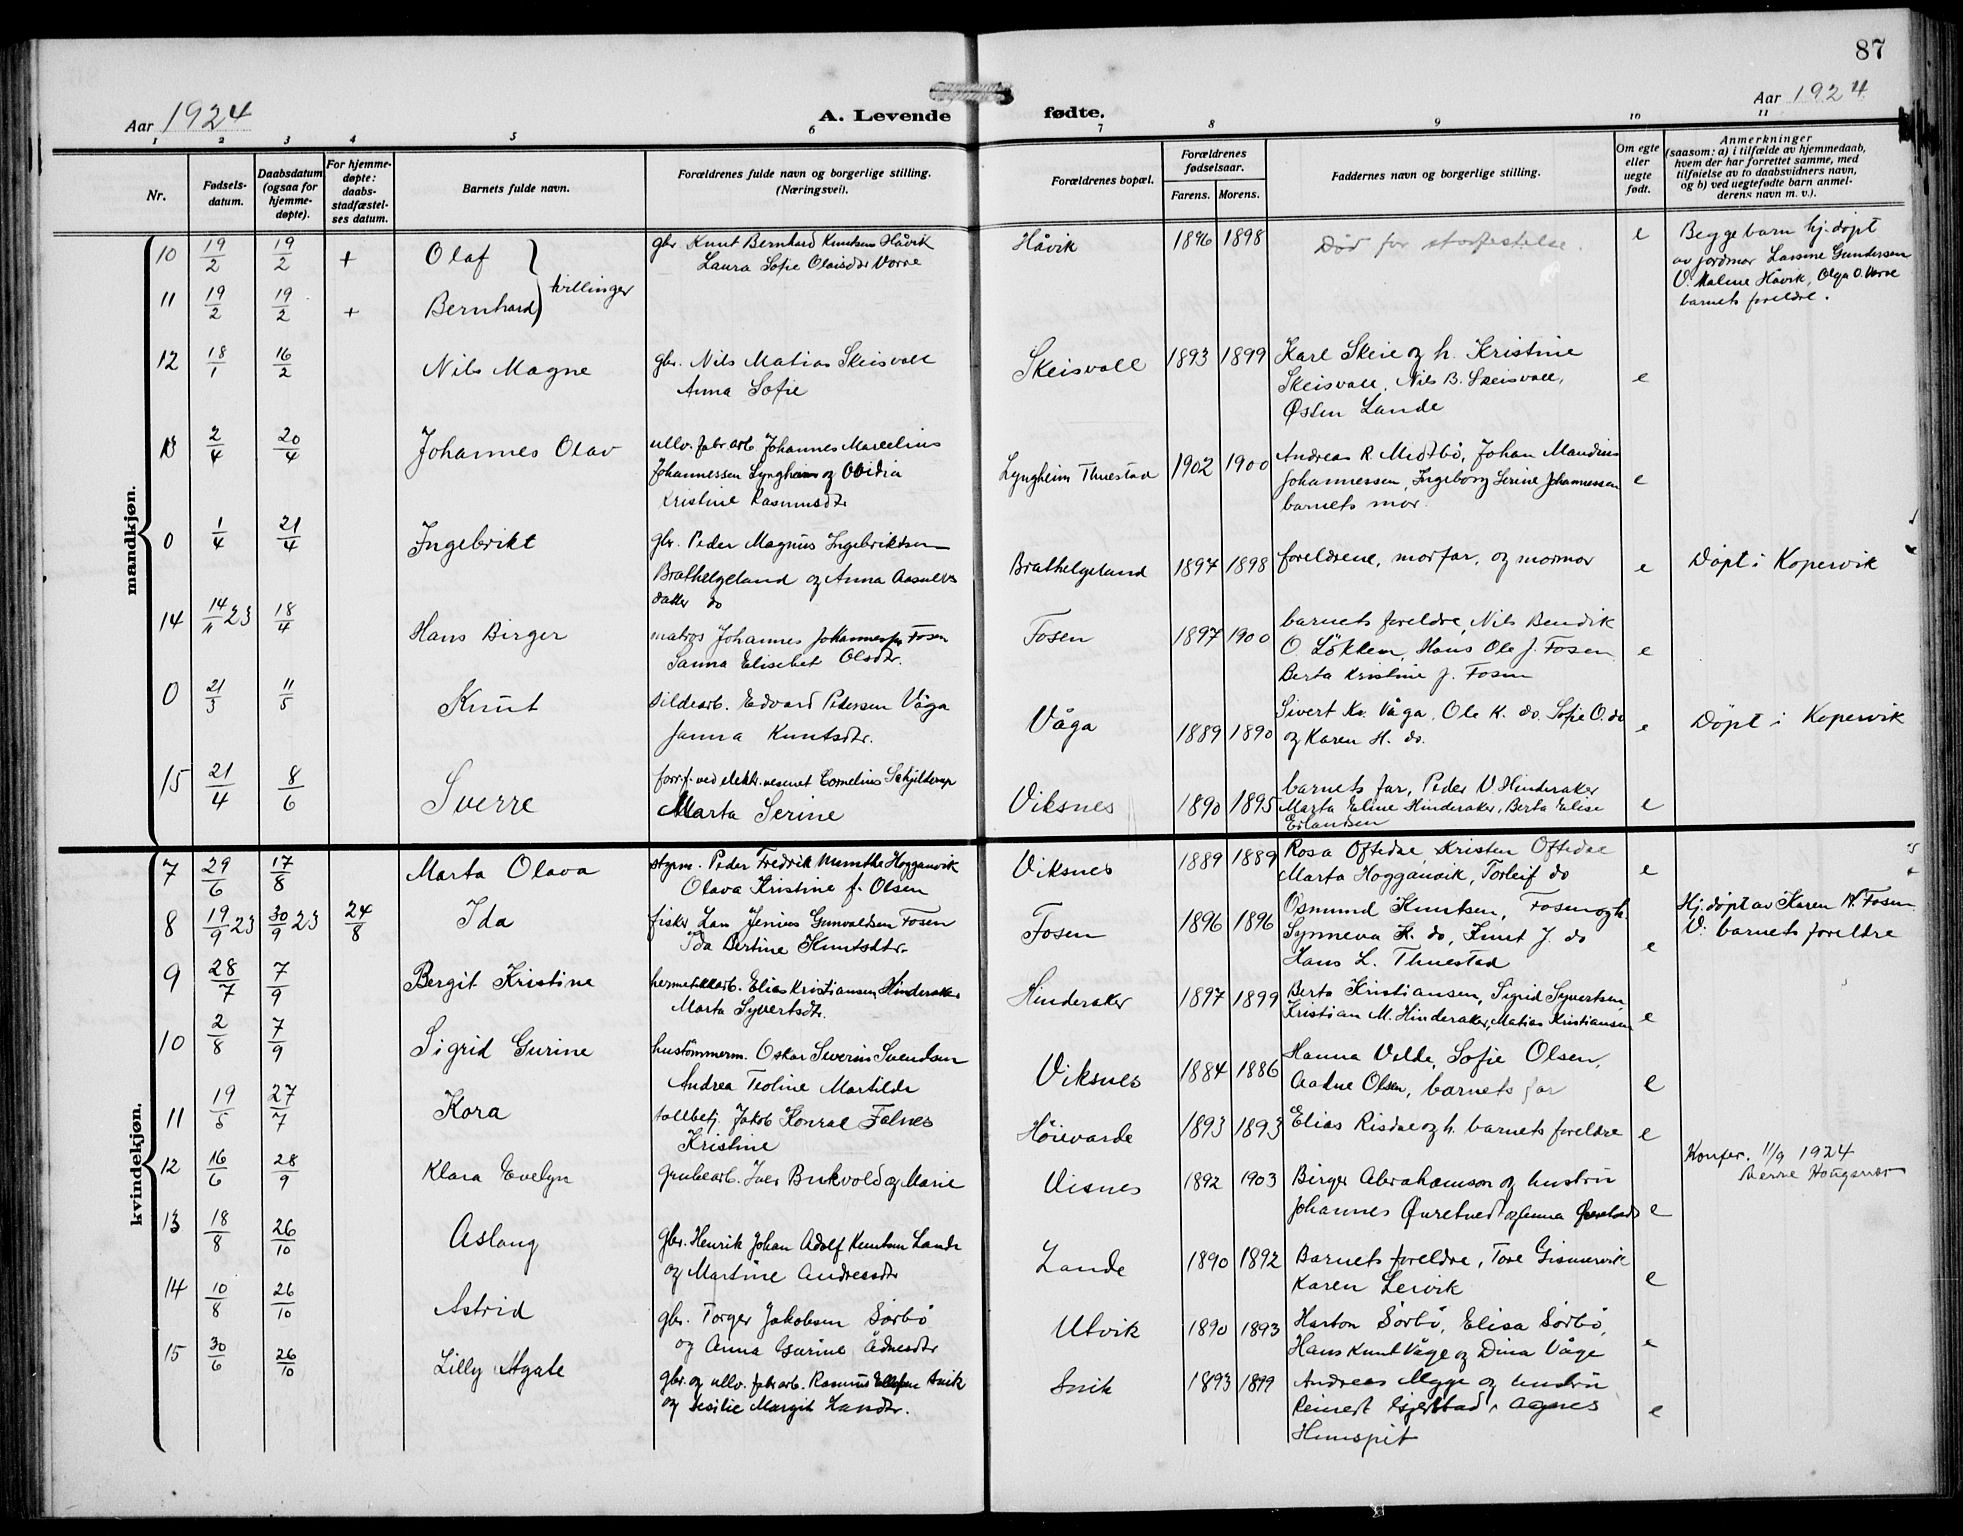 87
Aar 1924
A. Levende fødte.
Aar 1924
1 2 3 4 5 6 7 8 9 10 11
Nr.
Fødsels-
datum.
Daabsdatum
(ogsaa for
hjemme-
døpte).
For hjemme-
døpte:
daabs-
stadfæstel-
ses datum.
Barnets fulde navn.
Forældrenes fulde navn og borgerlige stilling.
(Næringsvei).
Forældrenes bopæl.
Forældrenes
fødselsaar.
Farens. Morens.
Faddernes navn og borgerlige stilling.
Om egte
eller
uegte
født.
Anmerkninger
(saasom: a) i tilfælde av hjemmedaab,
hvem der har forrettet samme, med
tilføielse av to daabsvidners navn,
og b) ved uegtefødte barn anmel-
derens navn m. v.).
mandkjøn.
10 19/2 19/2 + Olaf } tvillinger gbr Knut Bernhard Knutsen Håvik Håvik 1896 1898 Død før stadfestelse. e Begge barn hj. døpt
Laura Sofie Olaisdtr Vorre av jordmor Lassine Gundersen
11 19/2 19/2 + Bernhard V. Malene Håvik, Olga O. Vorre
barnets foreldre.
12 18/1 16/2 Nils Magne gbr. Nils Matias Skeisvoll Skeisvoll 1893 1899 Karl Skeie og h. Kristine
Anna Sofie Skeisvoll, Nils B. Skeisvoll, e
Østen Lande
13 2/4 20/4 Johannes Olav ullv. fabr arb. Johannes Marelius Lyngheim Thuestad 1902 1900 Andreas R. Midtbø, Johan Maudius
Johannessen Lyngheim og Ovidia Johannessen, Ingeborg Serine Johannessen e
Kristine Rasmusdtr barnets mor
0 1/4 21/4 Ingebrikt gbr. Peder Magnus Ingebriktsen Brathelgeland 1897 1898 foreldrene, morfar, og mormor e Døpt i Kopervik
Brathelgeland og Anna Aasulvs
datter do
14 14/11 23 18/4 Hans Birger matros Johannes Johannessen Fosen Fosen 1897 1900 barnets foreldre, Nils Bendik
Sanna Elisebet Olsdtr. O. Løkken, Hans Ole J. Fosen e
Berta Kristine J. Fosen
0 21/3 11/5 Knut sildearb. Edvard Pedersen Våga Våga 1889 1890 Sivert Kr. Våga, Ole K. do. Sofie O. do e Døpt i Kopervik
Janna Knutsdtr. og Karen H. do.
15 21/4 8/6 Sverre forr.f. ved elektr. vesenet Cornelius Schjelderup Viksnes 1890 1895 barnets far, Peder V. Hinderaker
Marta Serine Marta Eline Hinderaker, Berta Elise e
Erlandsen
kvindekjøn.
7 29/6 17/8 Marta Olava styrm. Peder Fredrik Munthe Hogganvik Viksnes 1889 1889 Rosa Oftedal, Kristen Oftedal
Olava Kristine f. Olsen Marta Hogganvik, Torleif do e
8 19/9 23 30/9 23 24/8 Ida fisker Lars Jenius Gunvaldsen Fosen Fosen 1896 1896 Osmund Knutsen, Fosen og h. Hj. døpt av Karen N. Fosen
og Ida Bertine Knutsdtr. Synneva K. do, Knut J. do e V: barnets foreldre
Hans L. Thuestad
9 28/7 7/9 Bergit Kristine hermetikkarb. Elias Kristiansen Hinderaker Hinderaker 1897 1899 Berta Kristiansen, Sigrid Syvertsen
Marta Syvertsdtr. Kristian M. Hinderaker, Matias Kristiansen e
10 2/8 7/9 Sigrid Gurine hustømmerm. Oskar Severin Svendsen Viksnes 1884 1886 Hanna Velde, Sofie Olsen,
Andrea Teoline Martilde Aadne Olsen, barnets far e
11 19/5 27/7 Kora tollbetj. Jakob Konrad Falnes Høievarde 1893 1893 Elias Risdal og h. barnets foreldre e
Kristine
12 16/6 28/9 Klara Evelyn grubearb. Iver Birkvold og Marie Visnes 1892 1903 Birger Abrahamson og hustru Konfer. 11/9 1924
Johannes Øvretved og Anna Øvretved e
13 18/8 26/10 Aslaug gbr. Henrik Johan Adolf Knutsen Lande Lande 1890 1892 Barnets foreldre, Tore Gismervik
og Martine Andreasdtr Karen Leivik e
14 10/8 26/10 Astrid gbr. Torger Jakobsen Sørbø Utvik 1890 1893 Harton Sørbø, Elisa Sørbø,
og Anna Gurine Ådnesdtr Hans Knut Våge og Dina Våge e
15 30/6 26/10 Lilly Agate gbr. og ullv. fabr arb. Rasmus Ellefsen Snik Snik 1893 1899 Andreas Mygge og hustru
og Sesilie Margit Larsdtr. Reinert Gjerstad, Agnes e
Humspit